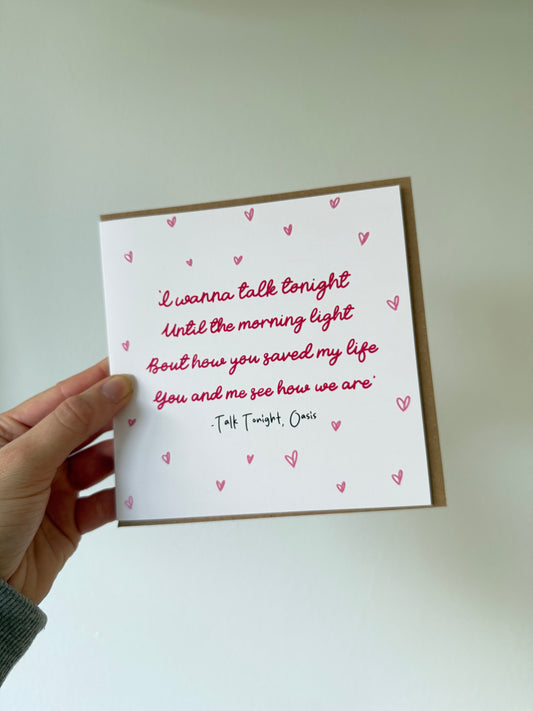 'I wanna talk tonight
Until the morning light
Bout how you saved my life
You and me see how we are'
-Talk Tonight, Oasis